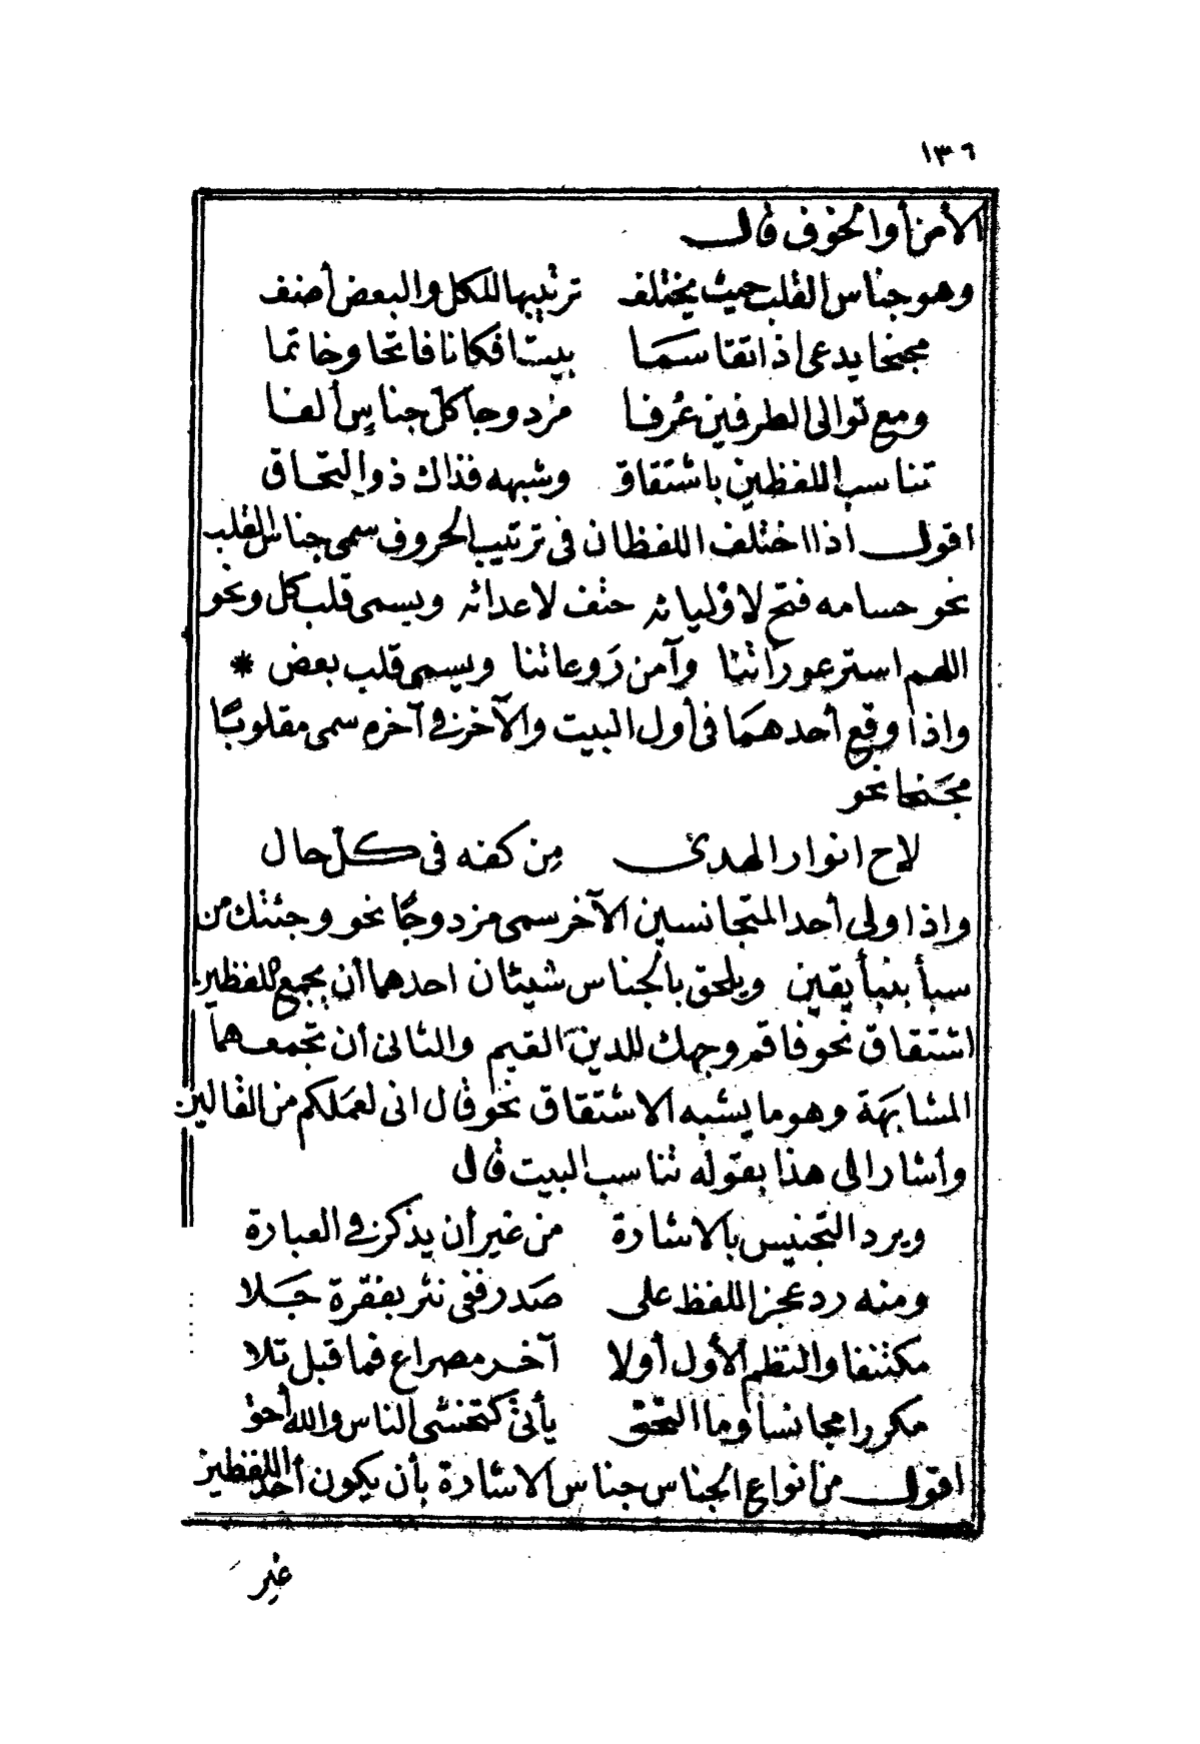 ١٣٦
الأمن أو الخوف قال
وهو جناس القلب حيث يختلف ترتيبها للكل والبعض أضف
مجنحا يدعى اذا تقاسما بيتا فكانا فاتحا وخاتما
ومع توالى الطرفين عُرفا مزدوجا كلّ جناسٍ ألفا
تناسب اللفظين باشتقاق وشبهه فذاك ذو التحاق
اقول اذا اختلف اللفظان فى ترتيب الحروف سمى جناس القلب
نحو حسامه فتح لاوليائه حتف لاعدائه ويسمى قلب كل ونحو
اللهم استر عوراتنا وآمن رَوعاتنا ويسمى قلب بعض *
واذا وقع أحدهما فى أول البيت والآخر فى آخره سمى مقلوبًا
مجَنحا نحو
لاح انوار الهدى مِن كفه فى كلّ حال
واذا ولى أحد المتجانسين الآخر سمى مزدوجًا نحو وجئتك من
سبأ بنبأ يقين ويلحق بالجناس شيئان احدهما أن يجمع اللفظين
اشتقاق نحو فاقم وجهك للدين القيم والثانى أن تجمعهما
المشابهة وهو ما يشبه الاشتقاق نحو قال انى لعملكم من القالين
وأشار الى هذا بقوله تناسب البيت قال
ويرد التجنيس بالاشارة من غير أن يذكر فى العبارة
ومنه رد عجز اللفظ على صَدر ففى نثر بفقرة جَلا
مكتنفا والنظم الأول أولا آخر مصراع فما قبل تلا
مكررا مجانسا وما التحق يأتى كتخشى الناس والله أحق
اقول من أنواع الجناس جناس الاشارة بأن يكون أحد اللفظين
غير